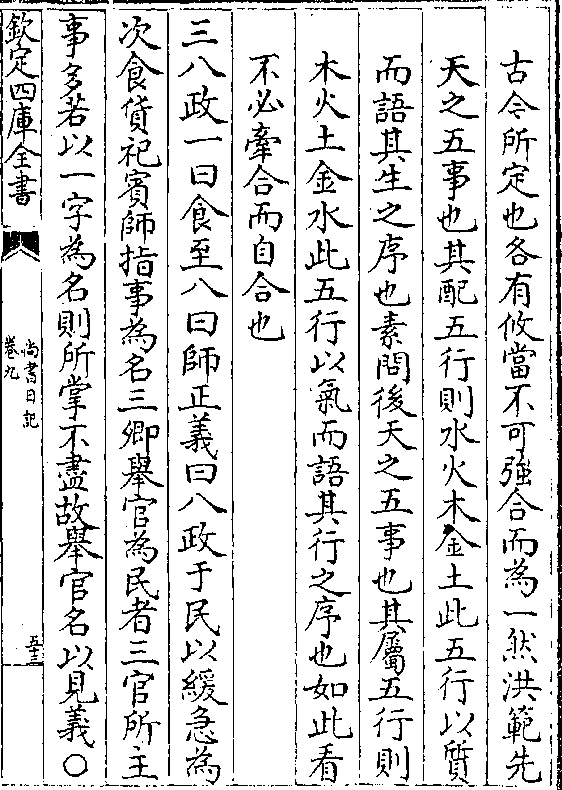 古今所定也各有攸當不可強合而為一然洪範先
天之五事也其配五行則水火木金土此五行以質
而語其生之序也素問後天之五事也其屬五行則
木火土金水此五行以氣而語其行之序也如此看
不必牽合而自合也
三八政一曰食至八曰師正義曰八政于民以緩急為
次食貨祀賓師指事為名三卿舉官為民者三官所主
事多若以一字為名則所掌不盡故舉官名以見義○
欽定四庫全書
尚書日記
卷九
五十三